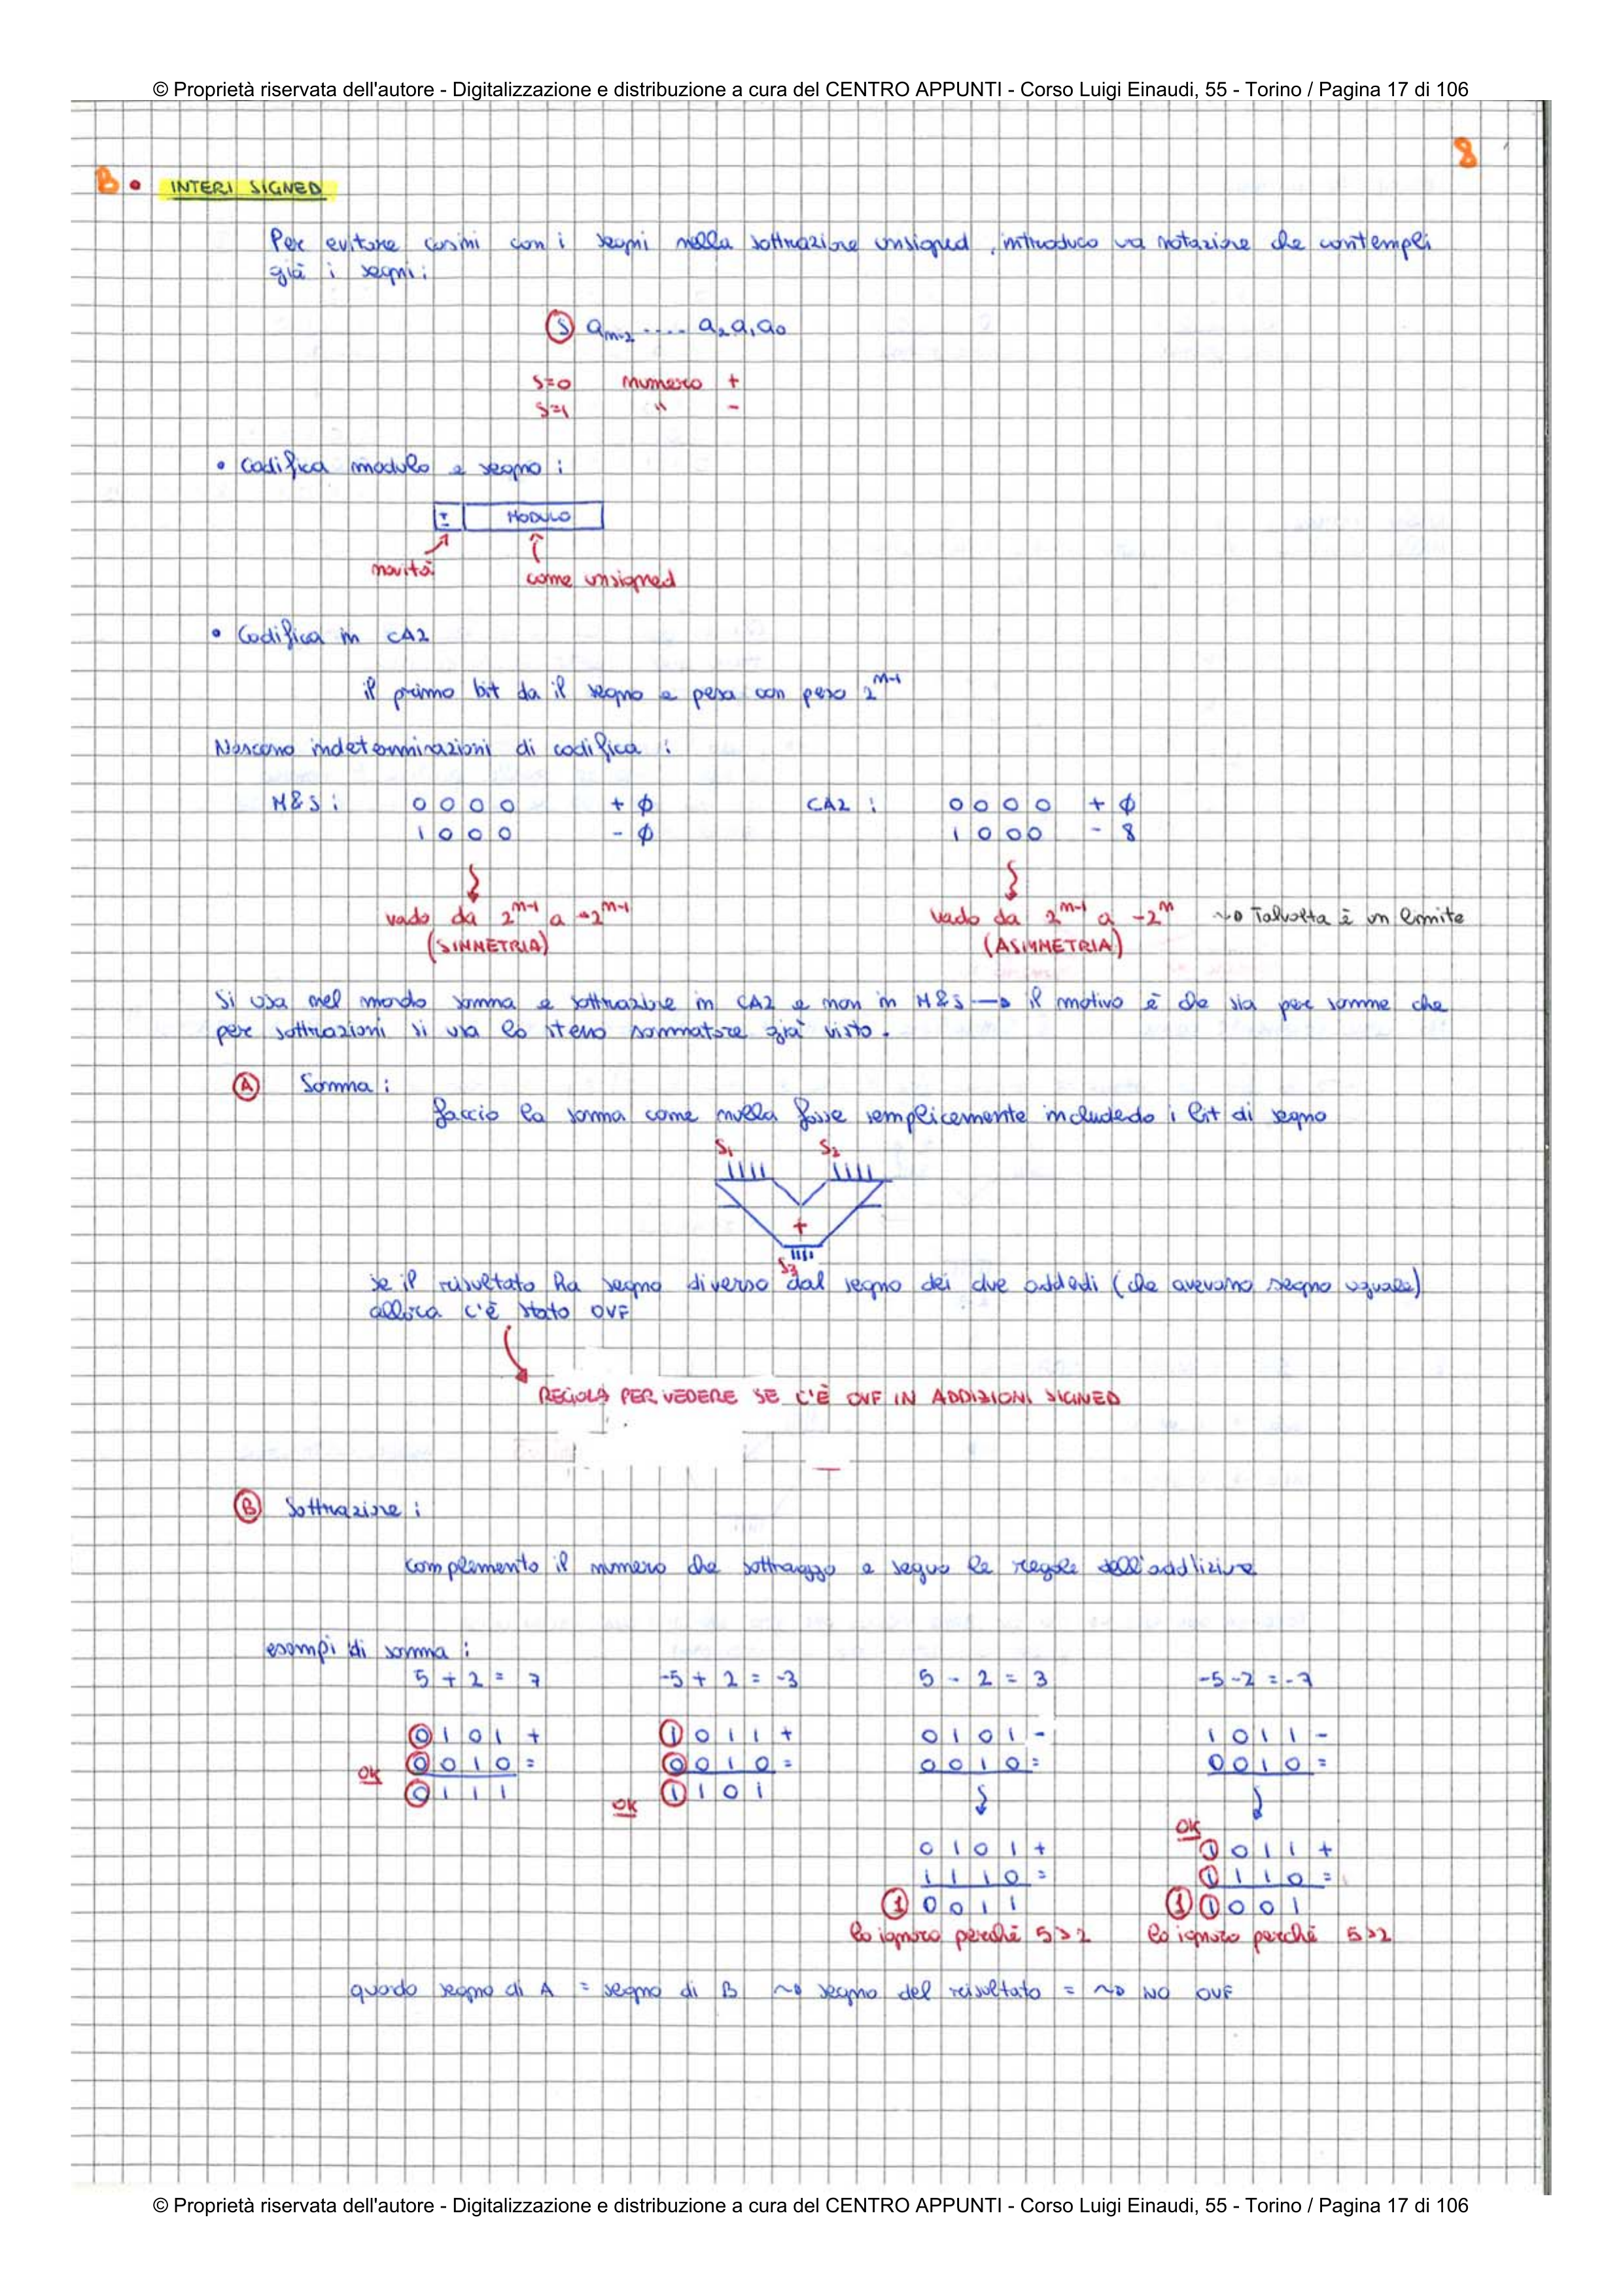 © Proprietà riservata dell'autore - Digitalizzazione e distribuzione a cura del CENTRO APPUNTI - Corso Luigi Einaudi, 55 - Torino / Pagina 17 di 106
8
B • INTERI SIGNED
Per evitare casini con i segni nella sottrazione unsigned, introduco una notazione che contempli
già i segni:
S a_{n-2} .... a₂ a₁ a₀
S=0 numero +
S=1 " -
• Codifica modulo e segno:
± MODULO
novità
come unsigned
• Codifica in CA2
il primo bit da il segno e pesa con peso 2^{n-1}
Nascono indeterminazioni di codifica:
M&S: 0 0 0 0 + ∅ CA2: 0 0 0 0 + ∅
1 0 0 0 - ∅ 1 0 0 0 - 8
vado da 2^{n-1} a -2^{n-1} vado da 2^{n-1} a -2^{n} ~> Talvolta è un limite
(SIMMETRIA) (ASIMMETRIA)
Si usa nel mondo somma e sottrazione in CA2 e non in M&S → il motivo è che sia per somme che
per sottrazioni si usa lo stesso sommatore già visto.
A Somma:
faccio la somma come nulla fosse semplicemente includedo i bit di segno
S₁ S₂
+
S₃
se il risultato ha segno diverso dal segno dei due addedi (che avevano segno uguale)
allora c'è stato OVF
REGOLA PER VEDERE SE C'È OVF IN ADDIZIONI SIGNED
B Sottrazione:
complemento il numero che sottraggo e seguo le regole dell'addizione
esempi di somma:
5 + 2 = 7 -5 + 2 = -3 5 - 2 = 3 -5 - 2 = -7
0 1 0 1 + 1 0 1 1 + 0 1 0 1 - 1 0 1 1 -
OK 0 0 1 0 = 0 0 1 0 = 0 0 1 0 = 0 0 1 0 =
0 1 1 1 OK 1 1 0 1
OK
0 1 0 1 + 1 0 1 1 +
1 1 1 0 = 1 1 1 0 =
1 0 0 1 1 1 1 0 0 1
lo ignoro perché 5>2 lo ignoro perché 5>2
quado segno di A = segno di B ~> segno del risultato = ~> NO OVF
© Proprietà riservata dell'autore - Digitalizzazione e distribuzione a cura del CENTRO APPUNTI - Corso Luigi Einaudi, 55 - Torino / Pagina 17 di 106